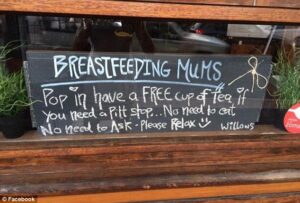 BREASTFEEDING MUMS
Pop in have a FREE cup of tea, if
you need a pitt stop... No need to eat
No need to Ask - Please Relax
Willows
© Facebook